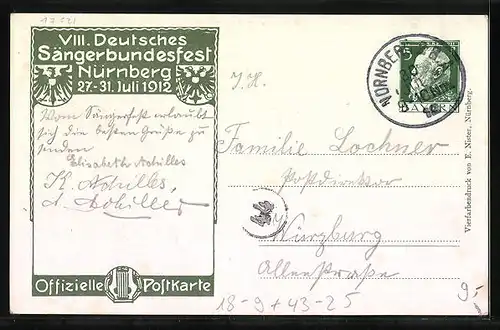 VIII. Deutsches
Sängerbundesfest
Nürnberg
27.-31. Juli 1912
Vom Sängerfest erlaubt
sich die besten Grüße zu
senden
Elisabeth Achilles
K. Achilles,
A. Achilles
Offizielle Postkarte
NÜRNBERG
5
BAYERN
I. H.
Familie Lochner
Postdirektor
Würzburg
Allenstraße
Vierfarbendruck von E. Nister, Nürnberg.
18-9 + 43-25
9,-